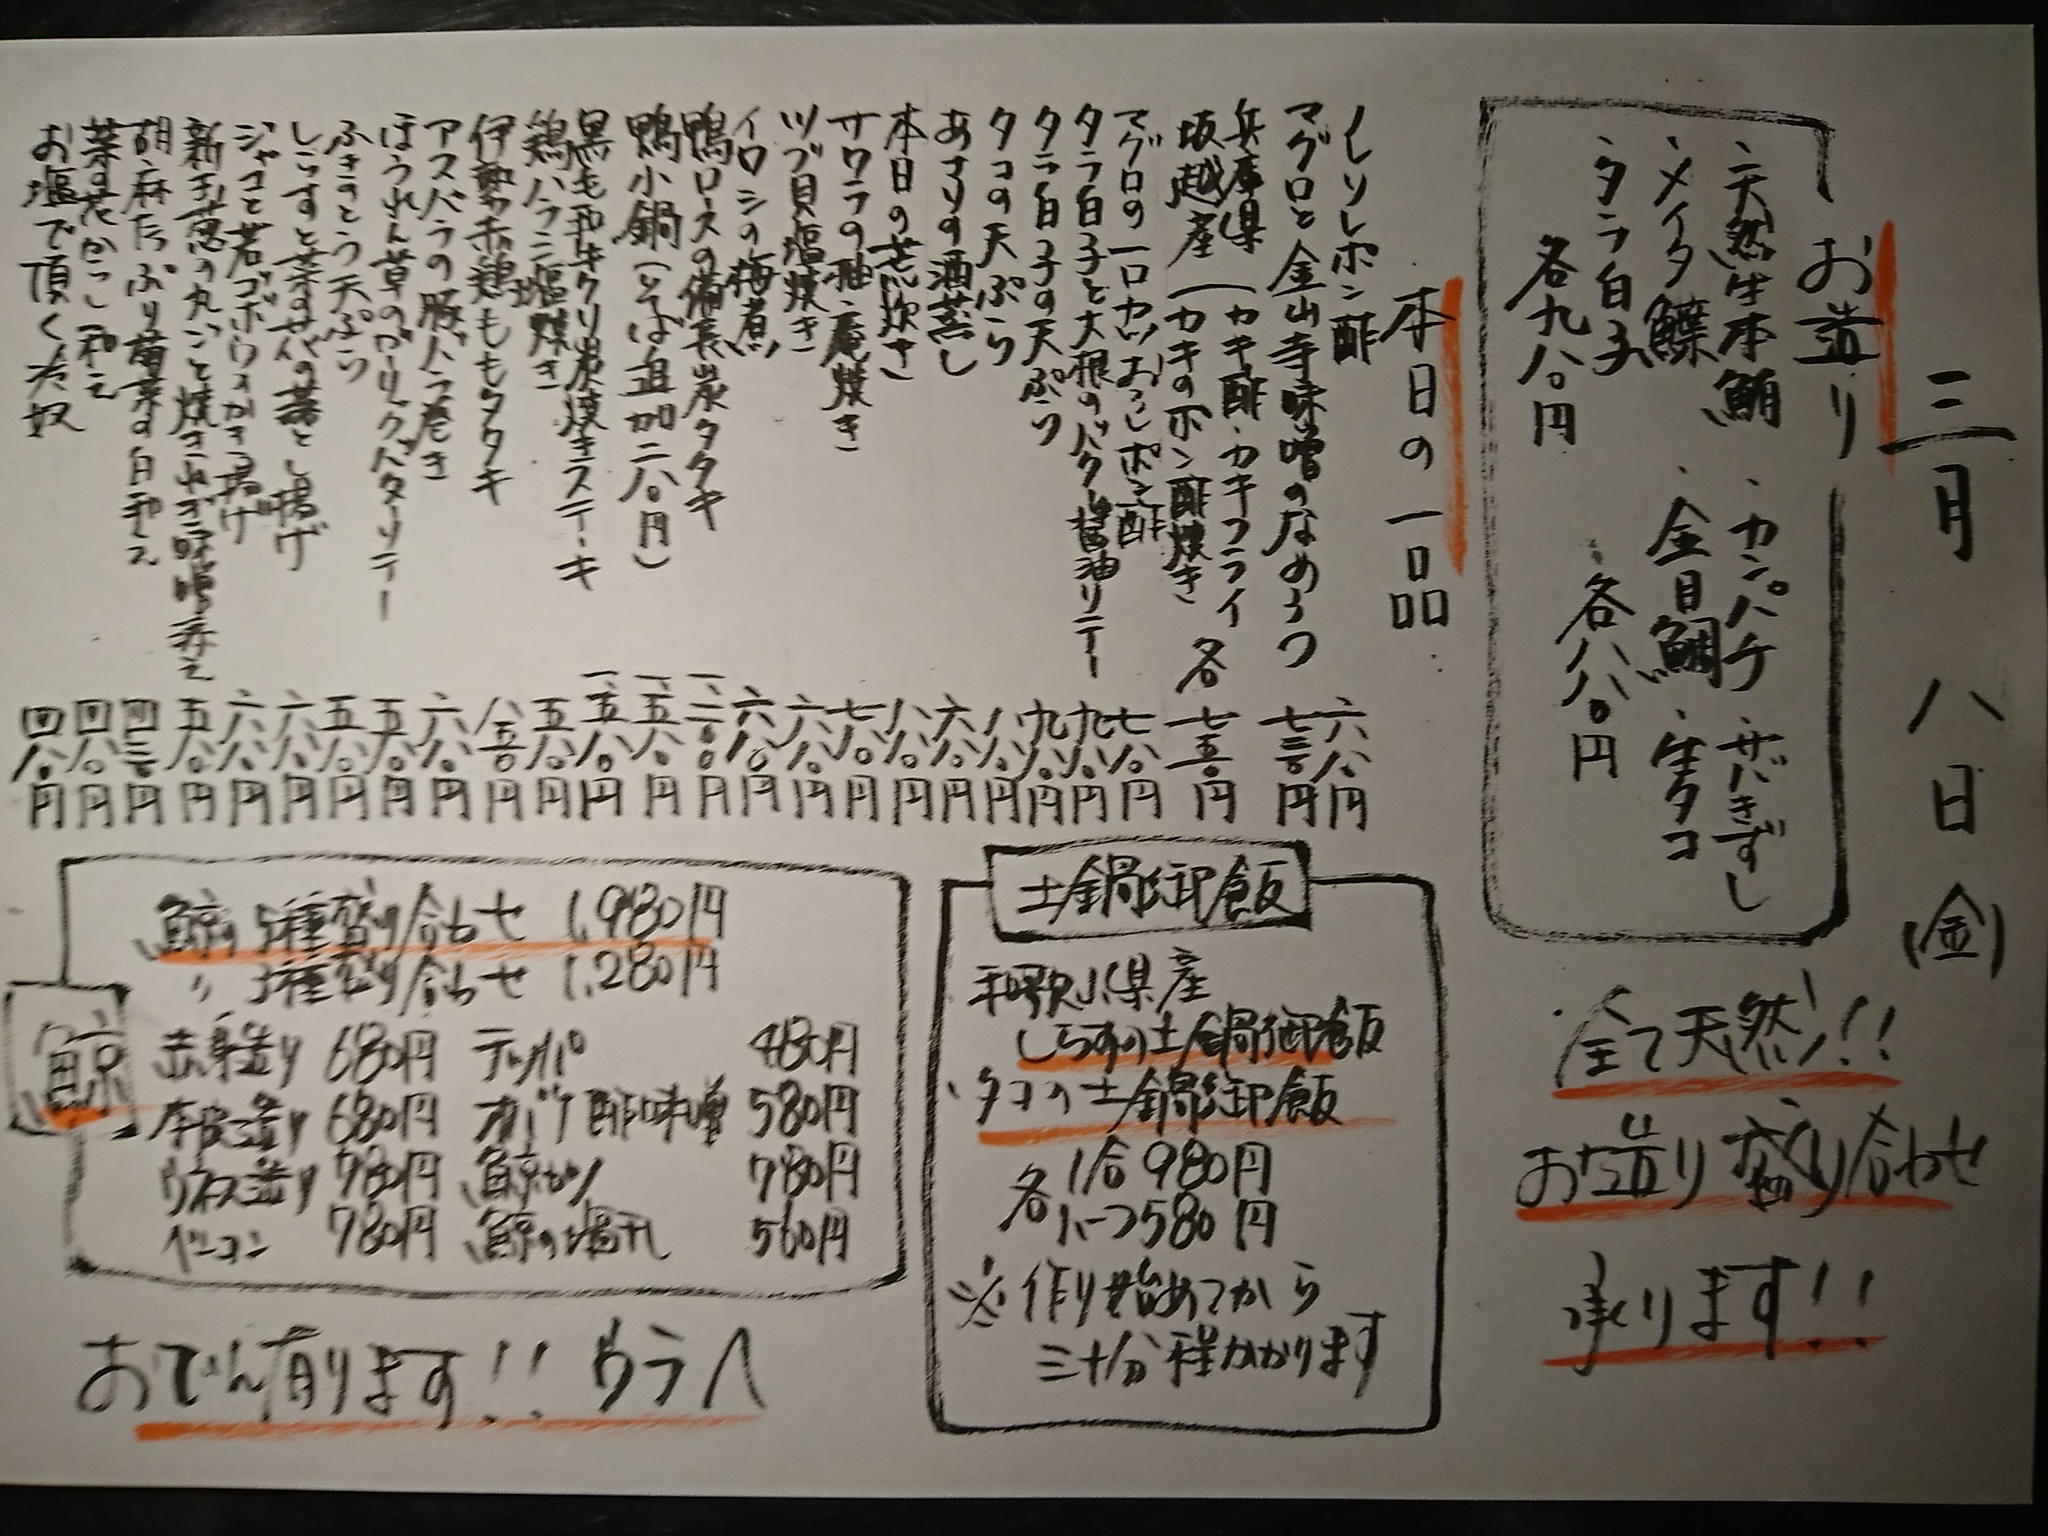 三月 八日(金)
お造り
・天然生本鮪 ・カンパチ ・サバきずし
・メイタ鰈 ・金目鯛 ・生タコ
・タラ白子 各八八〇円
各九八〇円
全て天然!!
お造り盛り合わせ
承ります!!
本日の一品
ノレソレポン酢 六八〇円
マグロと金山寺味噌のなめろう 七三〇円
兵庫県 坂越産
(カキ酢・カキフライ
(カキのポン酢焼き 各 七五〇円
マグロの一口カツおろしポン酢 七八〇円
タラ白子と大根のバター醤油ソテー 九八〇円
タラ白子の天ぷら 九八〇円
タコの天ぷら 八八〇円
あさりの酒蒸し 六八〇円
本日の荒炊き 八八〇円
サワラの柚庵焼き 七八〇円
ツブ貝塩焼き 六八〇円
イワシの梅煮 六八〇円
鴨ロースの備長炭タタキ 一二〇〇円
鴨小鍋(そば追加二八〇円) 一五八〇円
黒毛和牛クリ炭焼きステーキ 一五八〇円
鶏ハラミ塩焼き 五八〇円
伊勢赤鶏ももタタキ 八五〇円
アスパラの豚バラ巻き 六八〇円
ほうれん草のガーリックバターソテー 五八〇円
ふきのとう天ぷら 五八〇円
しらすと菜の花の落とし揚げ 六八〇円
ジャコと若ゴボウのかき揚げ 六八〇円
新玉葱の丸ごと焼き 味噌添え 五八〇円
胡麻たっぷり菊菜の白和え 四三〇円
菜の花からし和え 四八〇円
お塩で頂く冷奴 四八〇円
土鍋御飯
和歌山県産
しらすの土鍋御飯
・タコの土鍋御飯
各 1合980円
ハーフ580円
※作り始めてから
三十分程かかります
鯨
鯨 5種盛り合わせ 1,980円
〃 3種盛り合わせ 1,280円
赤身造り 680円 テッパ 480円
本皮造り 680円 オバケ酢味噌 580円
ウネス造り 780円 鯨カツ 780円
ベーコン 780円 鯨の塩干し 560円
おでん有ります!! ウラへ